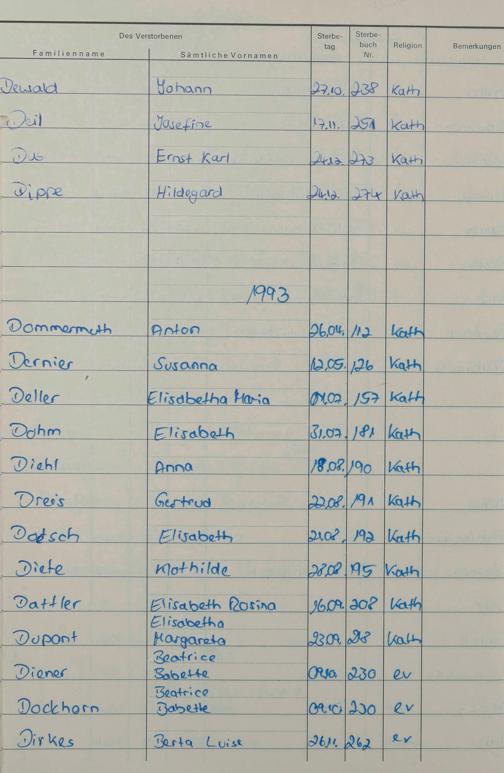 Des Verstorbenen Sterbe- Sterbe-
tag buch Religion Bemerkungen
Familienname Sämtliche Vornamen Nr.
Dewald Johann 27.10. 238 Kath
Deil Josefine 17.11. 251 Kath
Ernst Karl 24.12. 273 Kath
Dippe Hildegard 24.12. 274 Kath
1993
Dommermuth Anton 26.04. 112 Kath
Dernier Susanna 12.05. 126 Kath
Deller Elisabetha Maria 01.07. 157 Kath
Dohm Elisabeth 31.07. 181 Kath
Diehl Anna 18.08. 190 Kath
Dreis Gertrud 22.08. 191 Kath
Datsch Elisabeth 21.08. 192 Kath
Diete Mathilde 28.08. 195 Kath
Dattler Elisabeth Rosina 16.09. 208 Kath
Elisabetha
Dupont Margareta 23.09. 218 Kath
Beatrice
Diener Babette 09.10. 230 ev
Beatrice
Dockhorn Babette 09.10. 230 ev
Dirkes Berta Luise 26.11. 262 ev